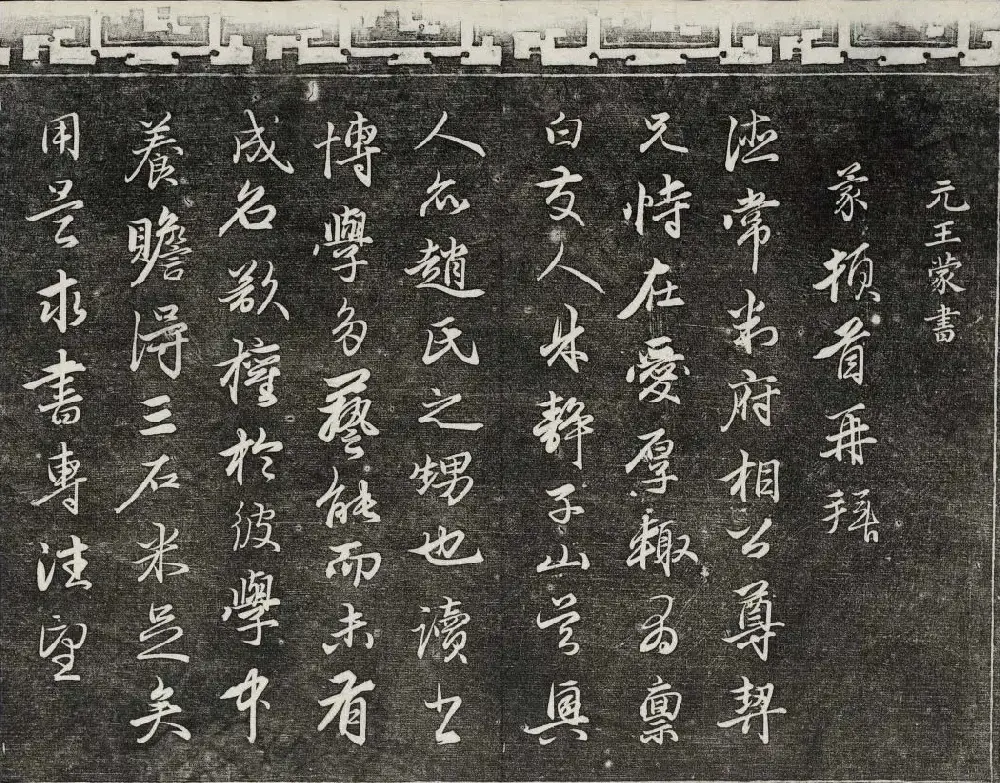 元王蒙書
蒙頓首再拜
德常判府相公尊契
兄恃在愛厚輒為稟
白友人朱靜子山吳興
人亦趙氏之甥也讀書
博學多藝能而未有
成名欲權於彼學中
養贍得三石米足矣
用是求書專注望